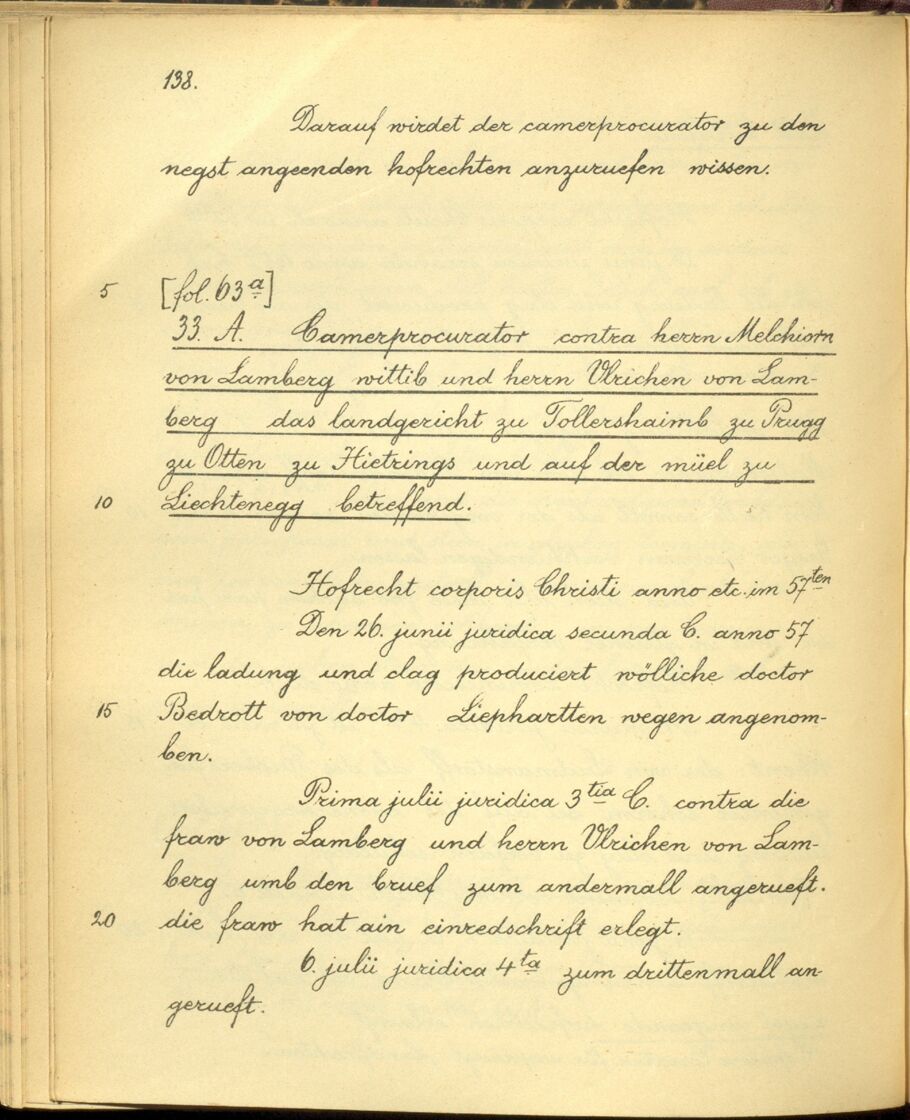 138.
Darauf wirdet der camerprocurator zu den
negst angeenden hofrechten anzuruefen wissen.
5 [fol. 63a]
33. A. Camerprocurator contra herrn Melchiorn
von Lamberg wittib und herrn Ulrichen von Lam-
berg das landgericht zu Tollershaimb zu Prugg
zu Otten zu Hietrings und auf der müel zu
10 Liechtenegg betreffend.
Hofrecht corporis Christi anno etc. im 57ten
Den 26. junii juridica secunda C. anno 57
die ladung und clag produciert wölliche doctor
15 Bedrott von doctor Liephartten wegen angenom-
ben.
Prima julii juridica 3tia C. contra die
fraw von Lamberg und herrn Ulrichen von Lam-
berg umb den bruef zum andermall angerueft.
20 die fraw hat ain einredschrift erlegt.
6. julii juridica 4ta zum drittenmall an-
gerueft.